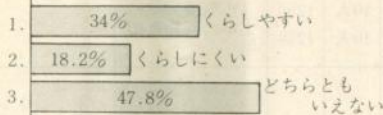 1. 34% くらしやすい
2. 18.2% くらしにくい
3. 47.8% どちらとも
いえない